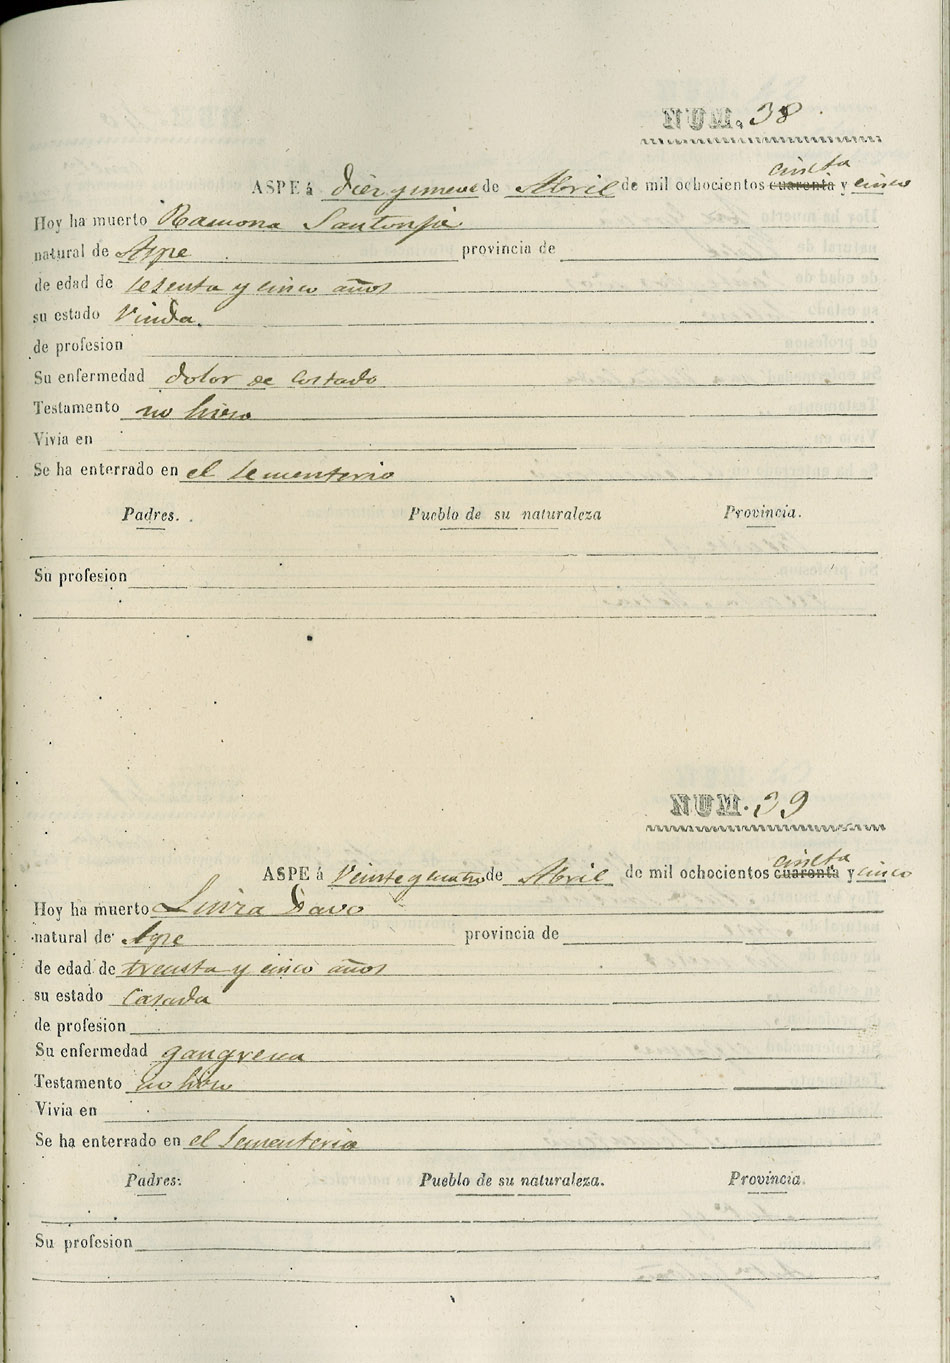 NUM. 38
cincta
ASPE á Diez y nueve de Abril de mil ochocientos cuarenta y cinco
Hoy ha muerto Ramona Santonja
natural de Aspe provincia de
de edad de sesenta y cinco años
su estado Viuda.
de profesion
Su enfermedad dolor de Costado
Testamento no hiso
Vivia en
Se ha enterrado en el sementerio
Padres. Pueblo de su naturaleza Provincia.
Su profesion
NUM. 39
cincta
ASPE á Veinte y cuatro de Abril de mil ochocientos cuarenta y cinco
Hoy ha muerto Davo
natural de Aspe provincia de
de edad de treinta y cinco años
su estado Casada
de profesion
Su enfermedad gangrena
Testamento no hiso
Vivia en
Se ha enterrado en el sementerio
Padres. Pueblo de su naturaleza. Provincia.
Su profesion